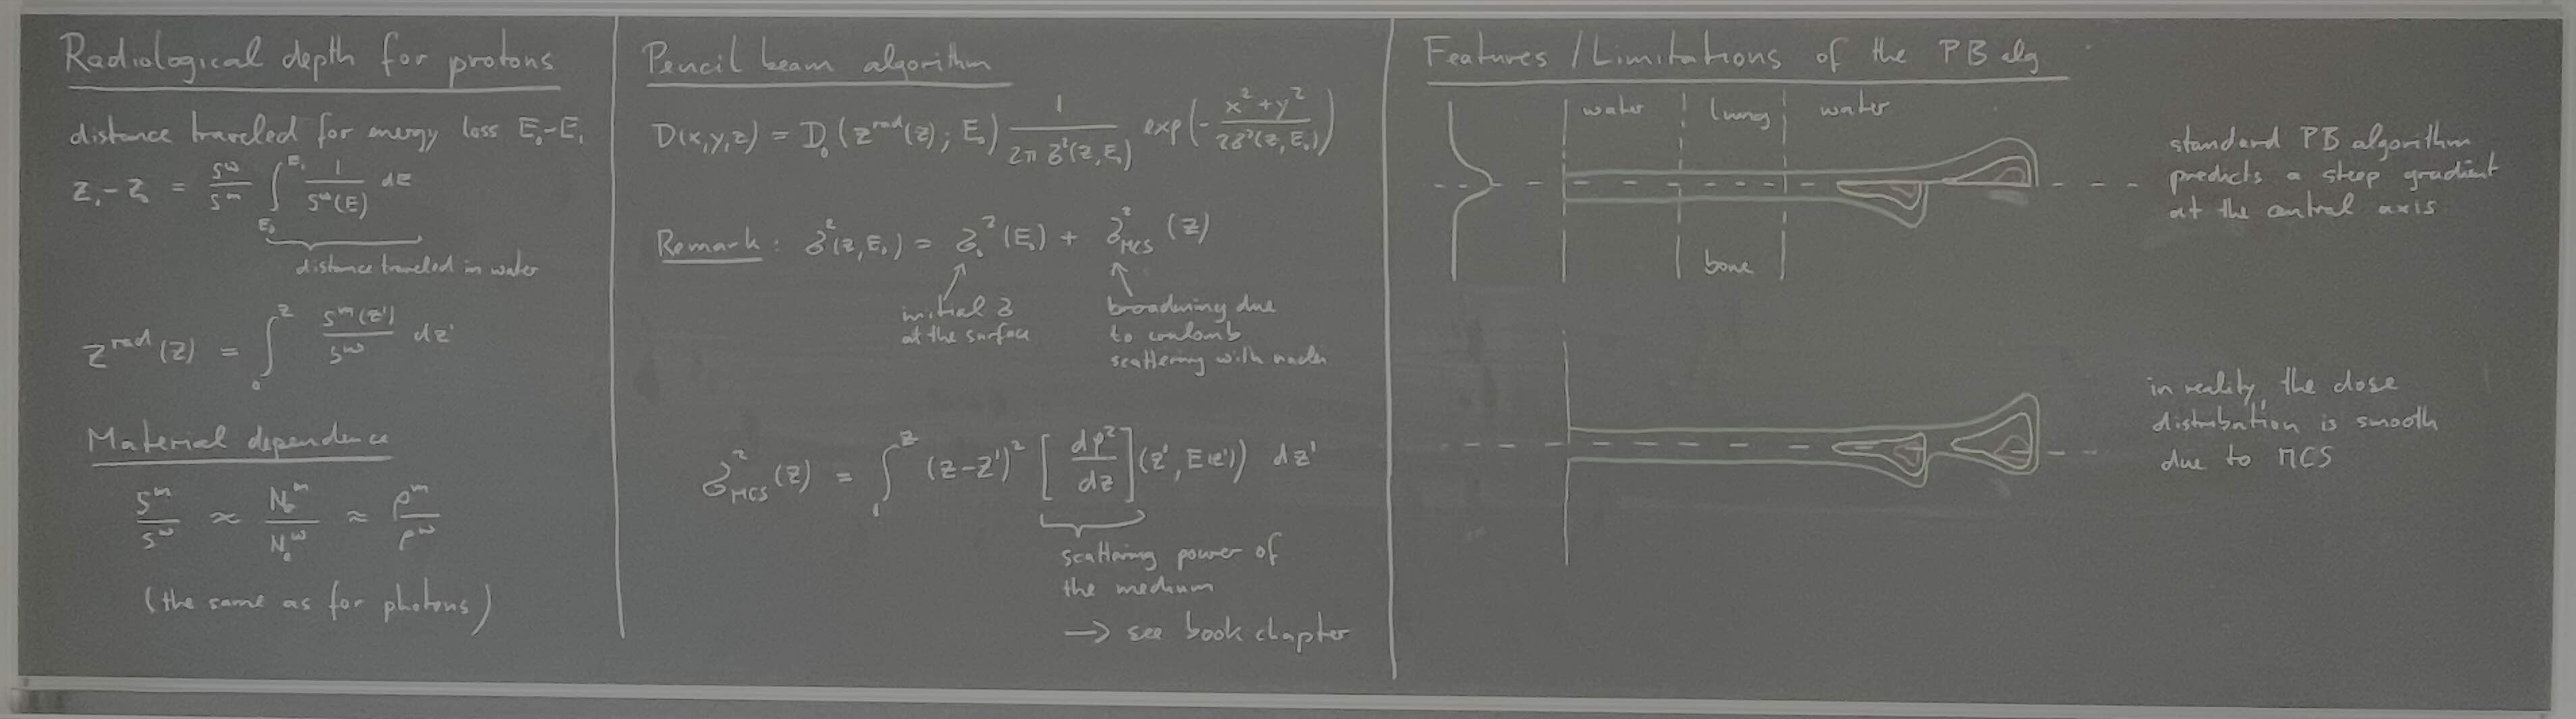 Radiological depth for protons
distance traveled for energy loss E₀-E₁
z₁ - z₀ = S^w/S^m ∫_{E₀}^{E₁} 1/S^w(E) dE
distance traveled in water
z^rad(z) = ∫_0^z S^m(z')/S^w dz'
Material dependence
S^m/S^w ≈ N_e^m/N_e^w ≈ ρ^m/ρ^w
(the same as for photons)
Pencil beam algorithm
D(x,y,z) = D₀(z^rad(z); E₀) 1/(2π σ²(z,E₀)) exp(-(x²+y²)/(2σ²(z,E₀)))
Remark: σ²(z,E₀) = σ₀²(E₀) + σ²_MCS(z)
initial σ
at the surface
broadening due
to coulomb
scattering with nuclei
σ²_MCS(z) = ∫^z (z-z')² [dφ²/dz](z', E(z')) dz'
scattering power of
the medium
→ see book chapter
Features / Limitations of the PB alg
water lung water
bone
standard PB algorithm
predicts a steep gradient
at the central axis
in reality, the dose
distribution is smooth
due to MCS